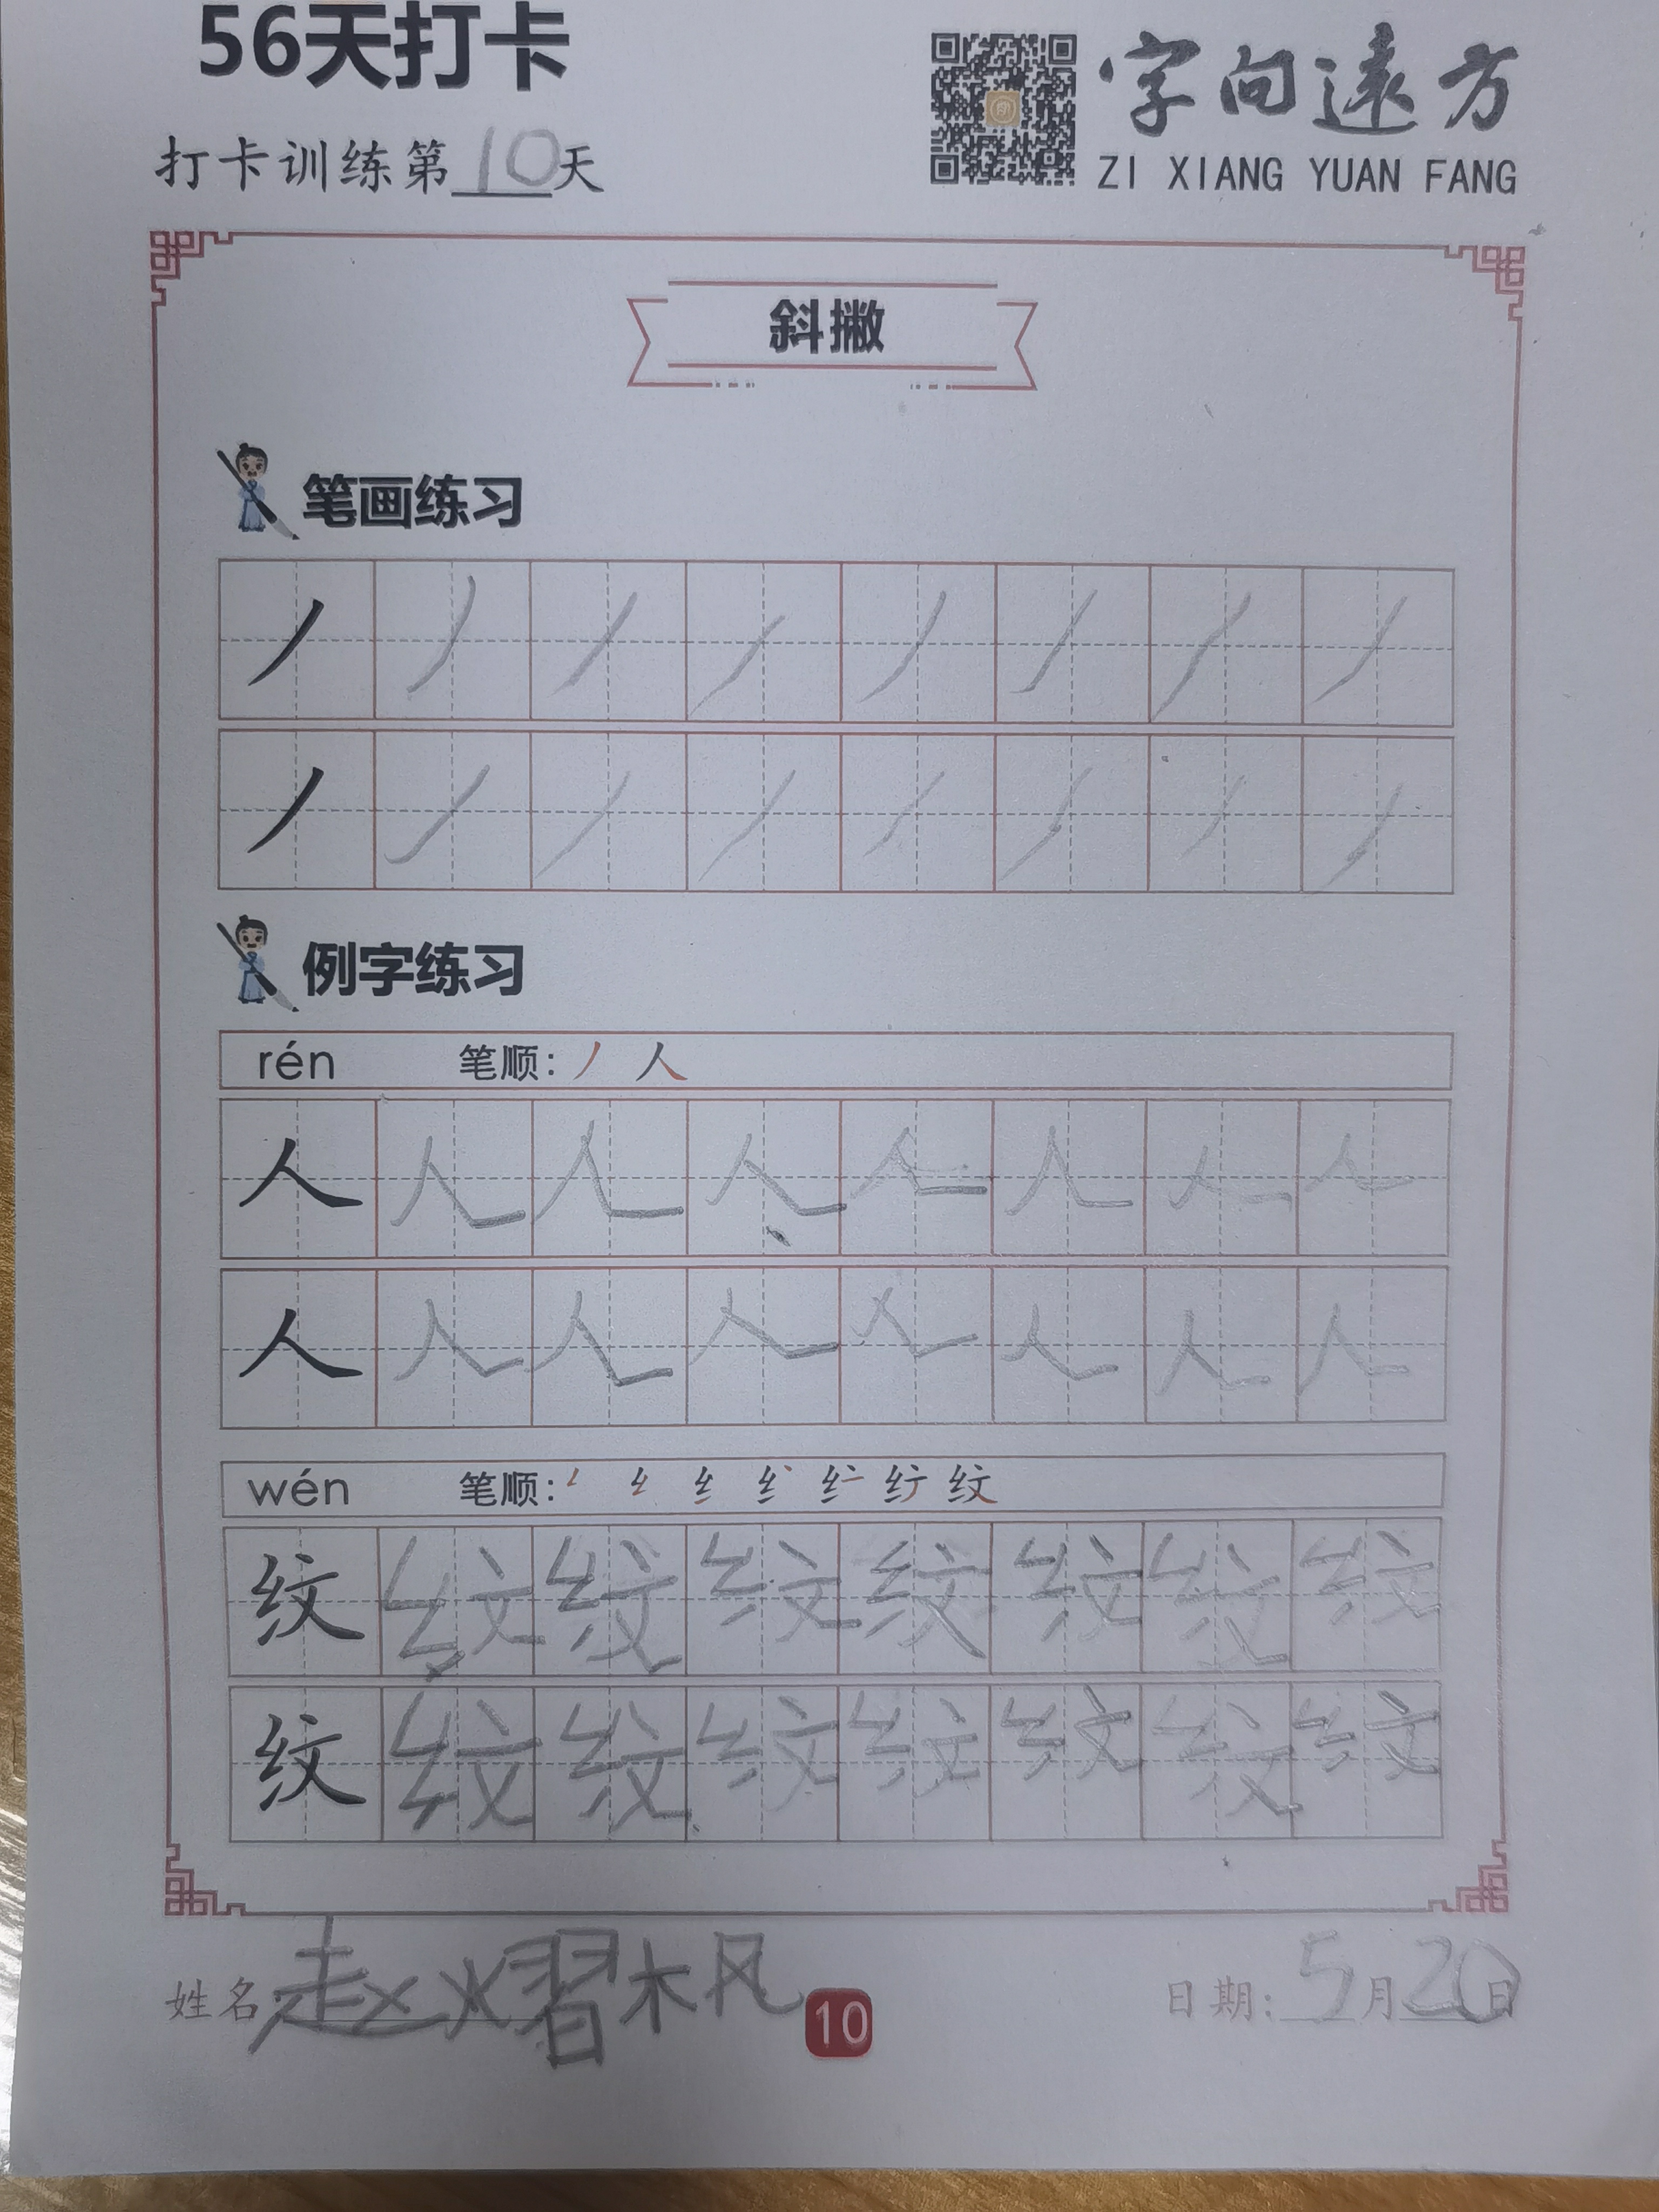 56天打卡
字向遠方
ZI XIANG YUAN FANG
打卡训练第10天
斜撇
笔画练习
丿丿丿丿丿丿丿丿
丿丿丿丿丿丿丿丿
例字练习
rén 笔顺：丿 人
人人人人人人人人
人人人人人人人人
wén 笔顺：纹
纹纹纹纹纹纹纹纹
纹纹纹纹纹纹纹纹
姓名：赵熠枫
10
日期：5月20日